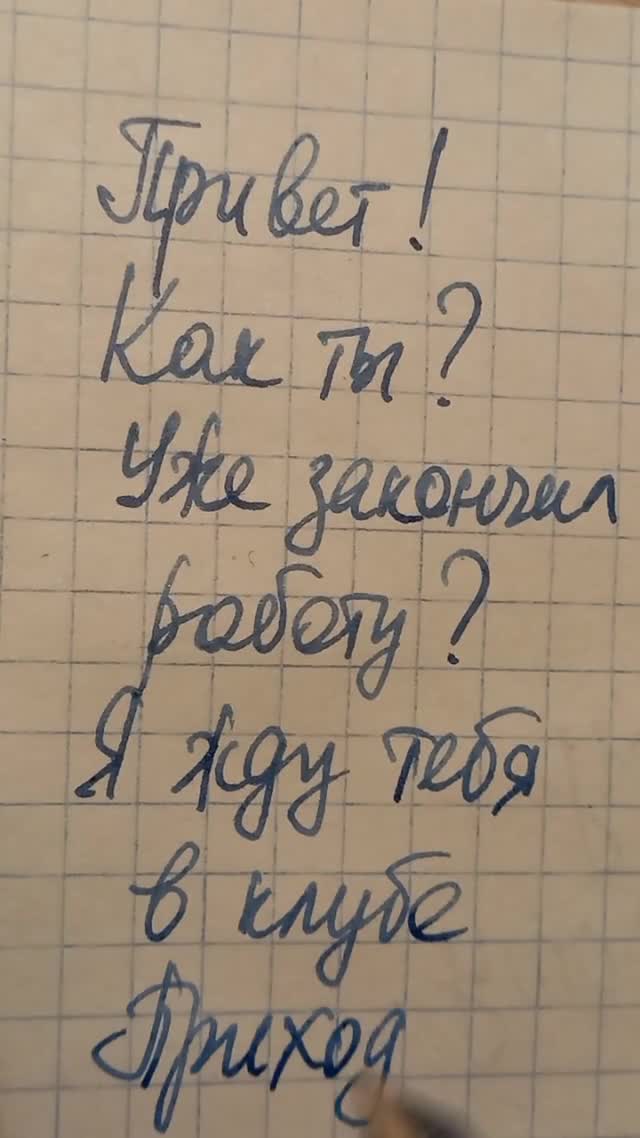 Привет!
Как ты?
Уже закончил
работу?
Я жду тебя
в клубе
Приход